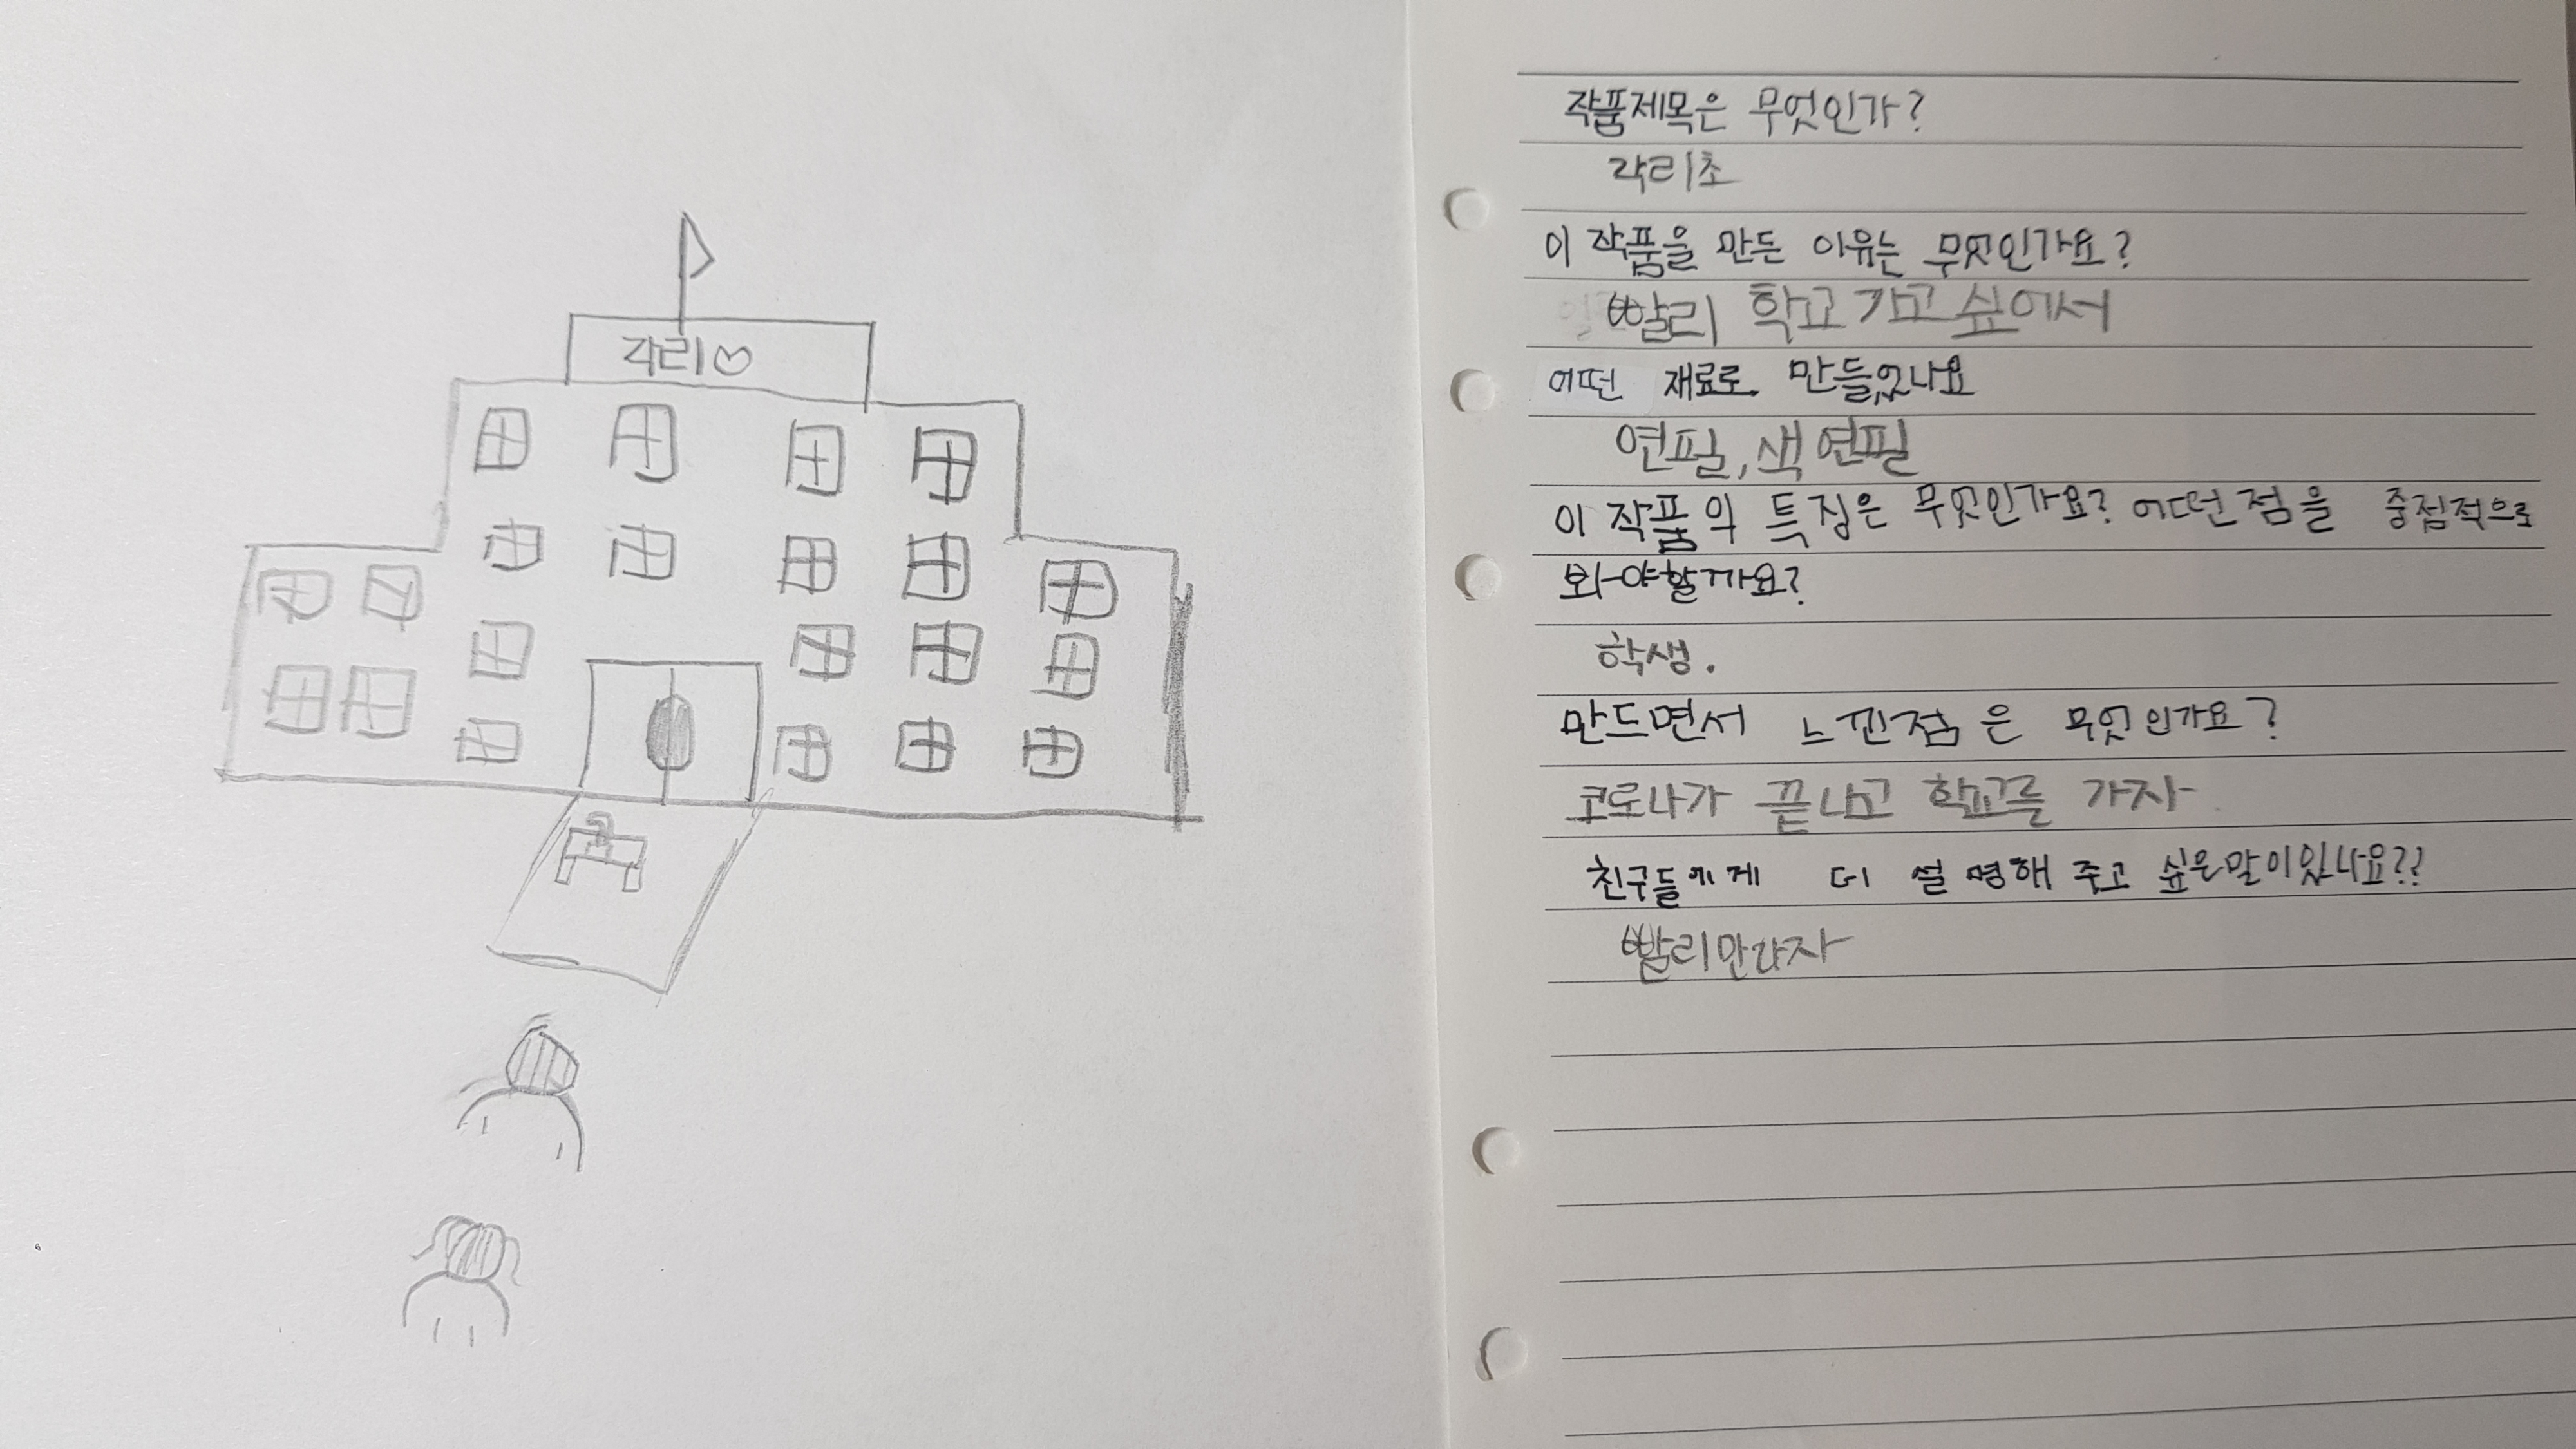 각리♡
작품제목은 무엇인가?
각리초
이 작품을 만든 이유는 무엇인가요?
빨리 학교 가고 싶에서
어떤 재료로 만들었나요
연필, 색연필
이 작품의 특징은 무엇인가요? 어떤점을 중점적으로
봐야할까요?
학생.
만드면서 느낀점은 무엇인가요?
코로나가 끝나고 학교를 가자
친구들에게 더 설명해 주고 싶은말이있나요??
빨리만나자